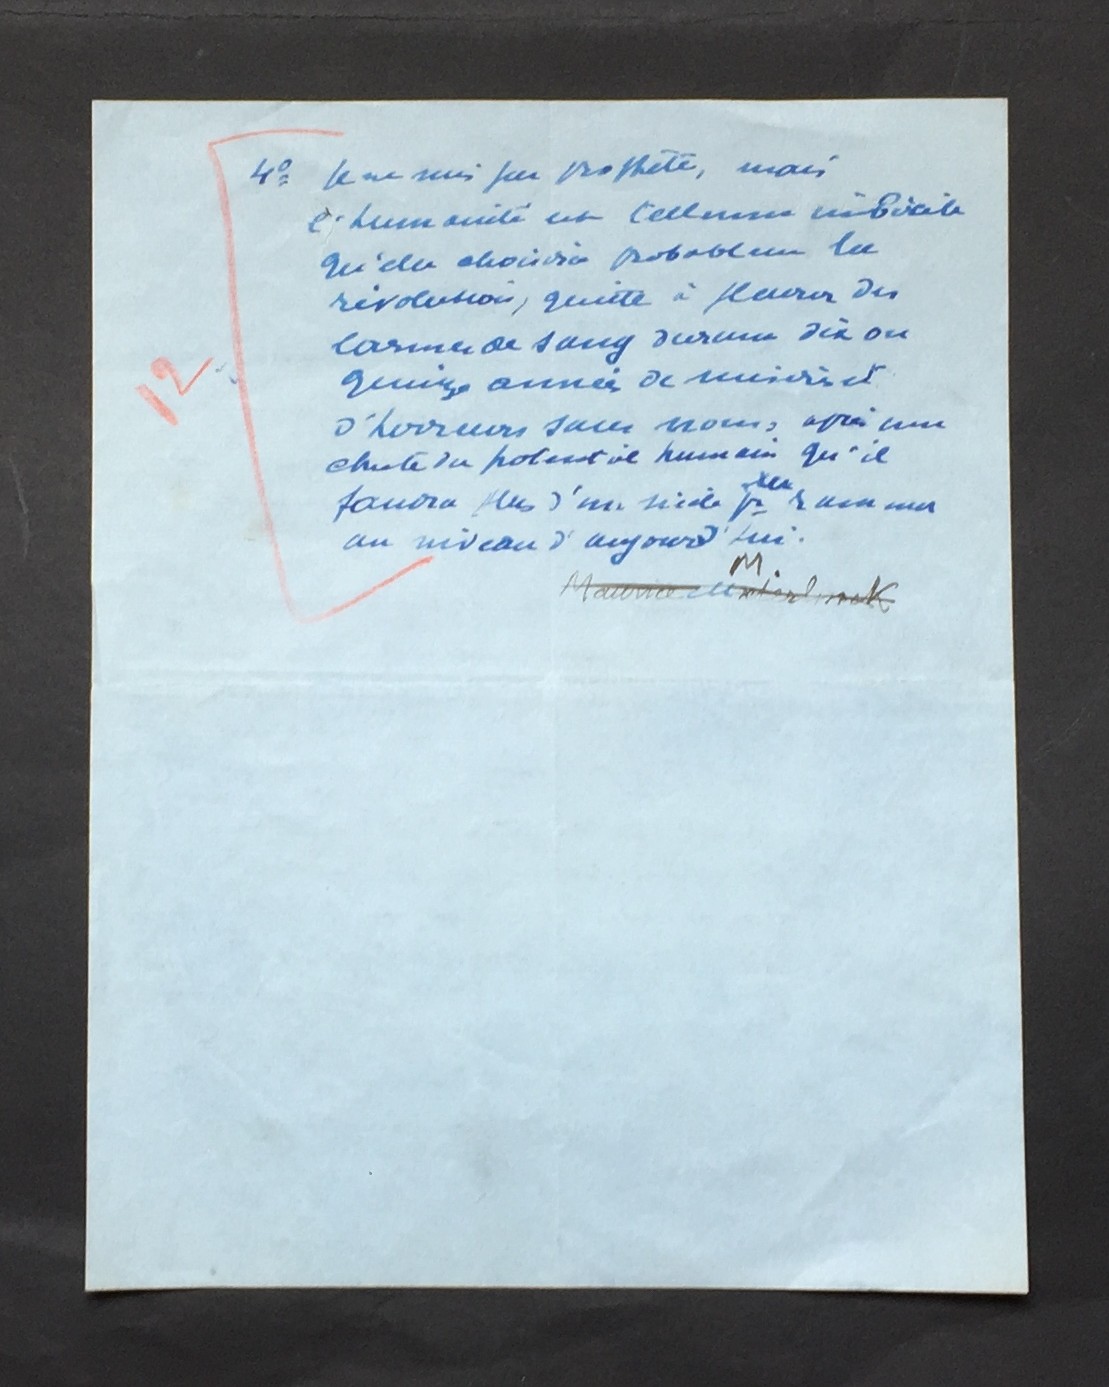 4º Je ne suis pas prophète, mais
l'humanité est tellement imbécile
qu'elle choisira probablement la
révolution, quitte à pleurer des
larmes de sang durant dix ou
quinze années de misères et
d'horreurs sans nom, après une
chute du potentiel humain qu'il
faudra plus d'un siècle pr ramener
au niveau d'aujourd'hui.
Maurice Maeterlinck
M
12